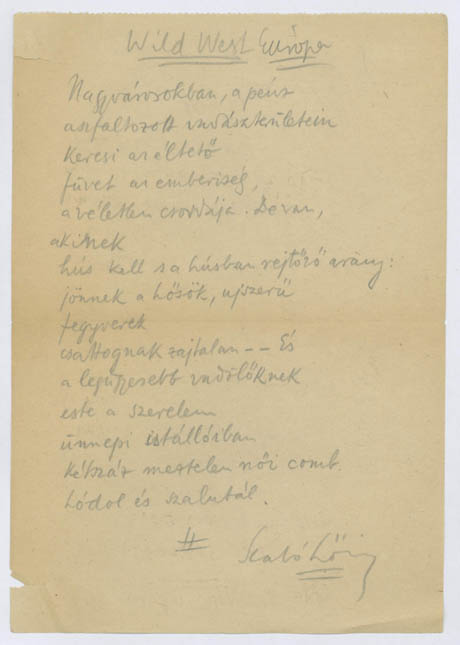 Wild West Európa
Nagyvárosokban, a pénz
aszfaltozott vadászterületein
keresi az éltető
füvet az emberiség,
a véletlen csordája. De van,
akinek
hús kell s a húsban rejtőző arany:
jönnek a hősök, ujszerű
fegyverek
csattognak zajtalan -- És
a legügyesebb vadölőknek
este a szerelem
ünnepi istállóiban
kétszáz meztelen női comb
hódol és szalutál.
Szabó Lőrinc